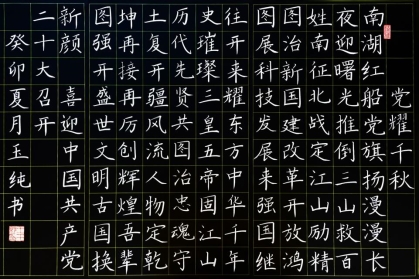 党耀千秋
南湖红船党旗扬漫漫长
夜迎曙光推倒三山救百
姓南征北战定江山励精
图治新国建改革开放鸿
图展科技发展来强国继
往开来耀东方中华千年
史璀璨三皇五帝固江山
历代先贤共图治忠魂守
土复开疆风流人物定乾
坤再接再厉创辉煌吾辈
图强开盛世文明古国换
新颜 喜迎中国共产党
二十大召开
癸卯夏月王纯书